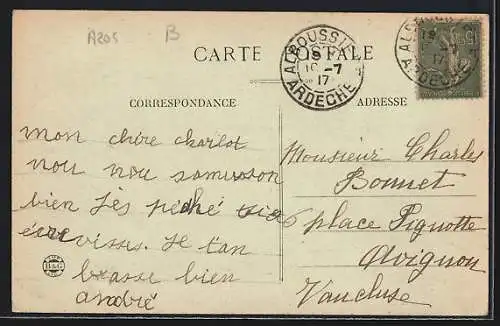 A205 B
CARTE POSTALE
ALBOUSSIE
19 -7
17
ARDECHE
ARDECHE
CORRESPONDANCE
ADRESSE
mon chère charlot
nou nou samuson
bien jès pèché
visses. Je tan
brasse bien
andré
B&G
Monsieur Charles
Bonnet
6 place Pignotte
Avignon
Vaucluse